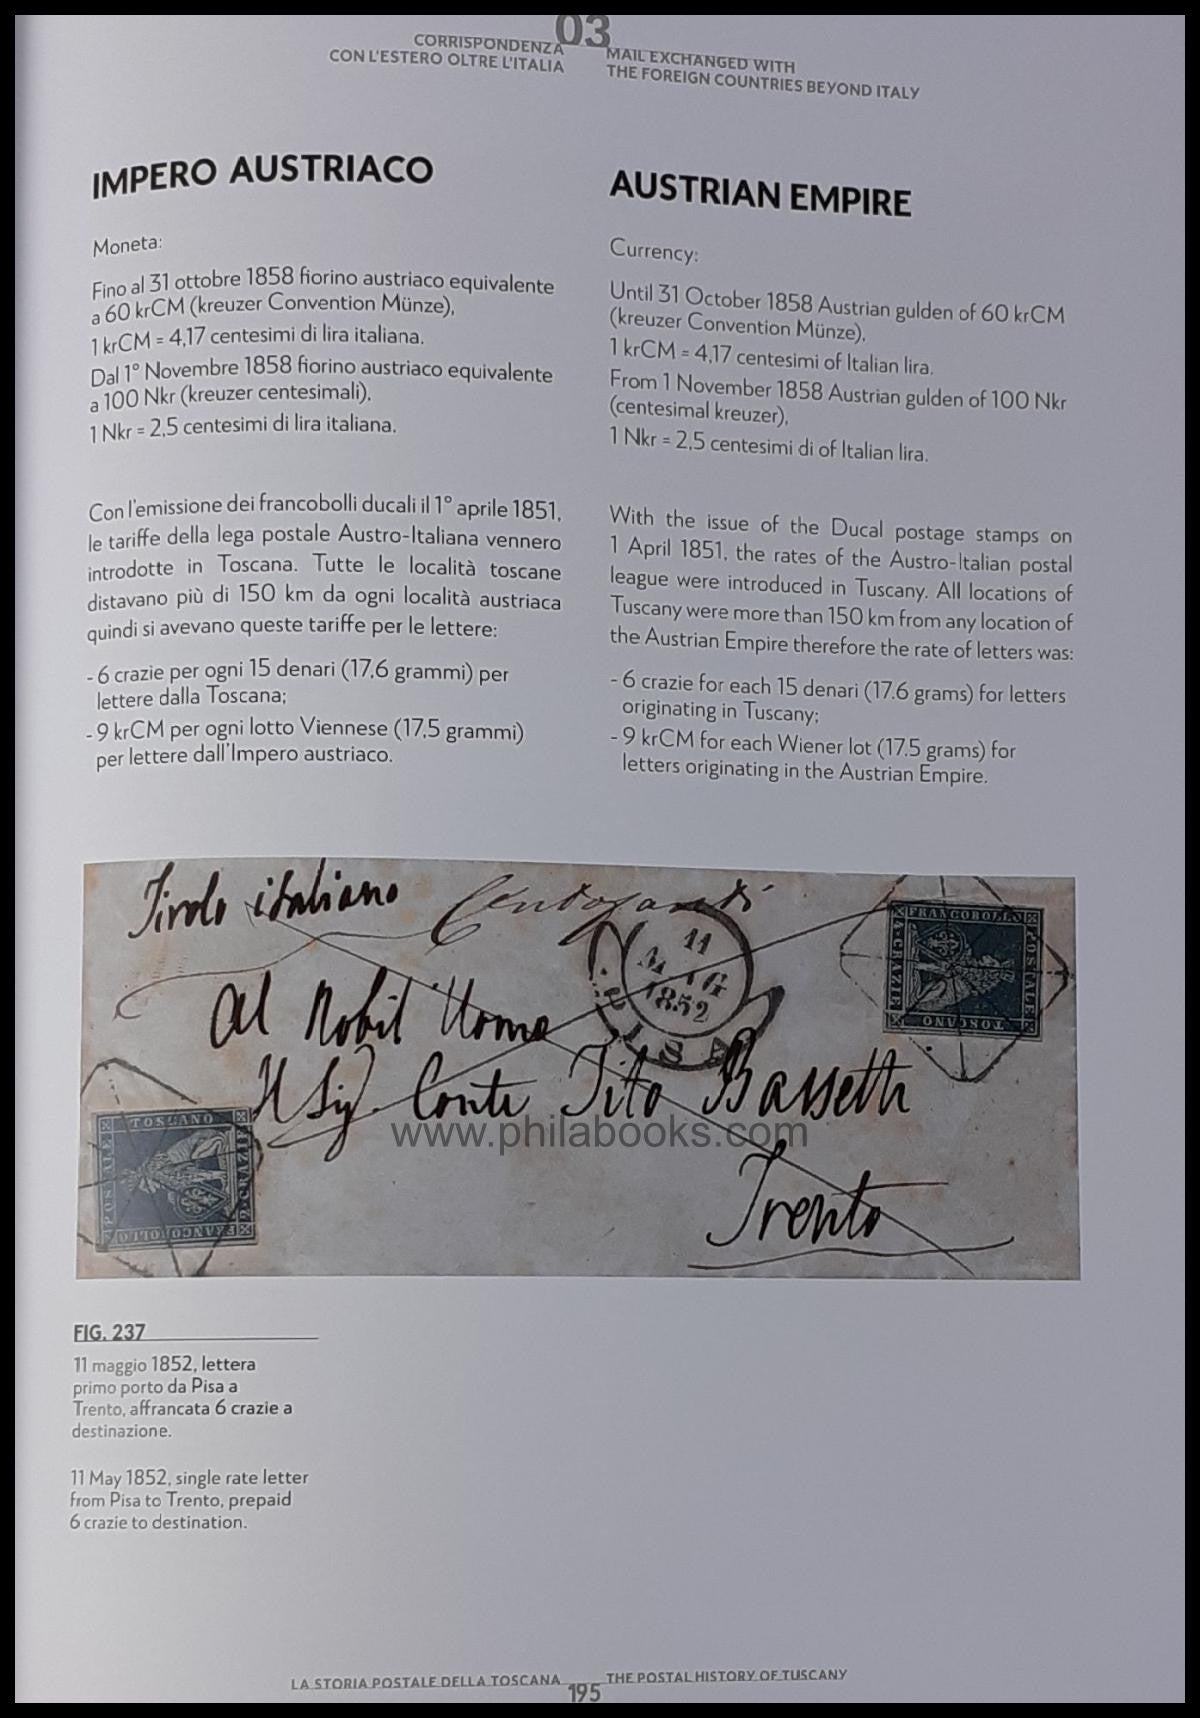 03
CORRISPONDENZA
CON L'ESTERO OLTRE L'ITALIA
MAIL EXCHANGED WITH
THE FOREIGN COUNTRIES BEYOND ITALY
IMPERO AUSTRIACO
Moneta:
Fino al 31 ottobre 1858 fiorino austriaco equivalente
a 60 krCM (kreuzer Convention Münze),
1 krCM = 4,17 centesimi di lira italiana.
Dal 1° Novembre 1858 fiorino austriaco equivalente
a 100 Nkr (kreuzer centesimali),
1 Nkr = 2,5 centesimi di lira italiana.
Con l'emissione dei francobolli ducali il 1° aprile 1851,
le tariffe della lega postale Austro-Italiana vennero
introdotte in Toscana. Tutte le località toscane
distavano più di 150 km da ogni località austriaca
quindi si avevano queste tariffe per le lettere:
- 6 crazie per ogni 15 denari (17,6 grammi) per
lettere dalla Toscana;
- 9 krCM per ogni lotto Viennese (17,5 grammi)
per lettere dall'Impero austriaco.
AUSTRIAN EMPIRE
Currency:
Until 31 October 1858 Austrian gulden of 60 krCM
(kreuzer Convention Münze),
1 krCM = 4,17 centesimi of Italian lira.
From 1 November 1858 Austrian gulden of 100 Nkr
(centesimal kreuzer),
1 Nkr = 2,5 centesimi di of Italian lira.
With the issue of the Ducal postage stamps on
1 April 1851, the rates of the Austro-Italian postal
league were introduced in Tuscany. All locations of
Tuscany were more than 150 km from any location of
the Austrian Empire therefore the rate of letters was:
- 6 crazie for each 15 denari (17.6 grams) for letters
originating in Tuscany;
- 9 krCM for each Wiener lot (17.5 grams) for
letters originating in the Austrian Empire.
Tirolo italiano
FRANCOBOLLO
POSTALE
TOSCANO
2 CRAZIE
11
MAG
1852
PISA
Al Nobil Uomo
Il Sig. Conte Tito Bassetti
Trento
TOSCANO
2 CRAZIE
FRANCOBOLLO
POSTALE
www.philabooks.com
FIG. 237
11 maggio 1852, lettera
primo porto da Pisa a
Trento, affrancata 6 crazie a
destinazione.
11 May 1852, single rate letter
from Pisa to Trento, prepaid
6 crazie to destination.
LA STORIA POSTALE DELLA TOSCANA
195
THE POSTAL HISTORY OF TUSCANY